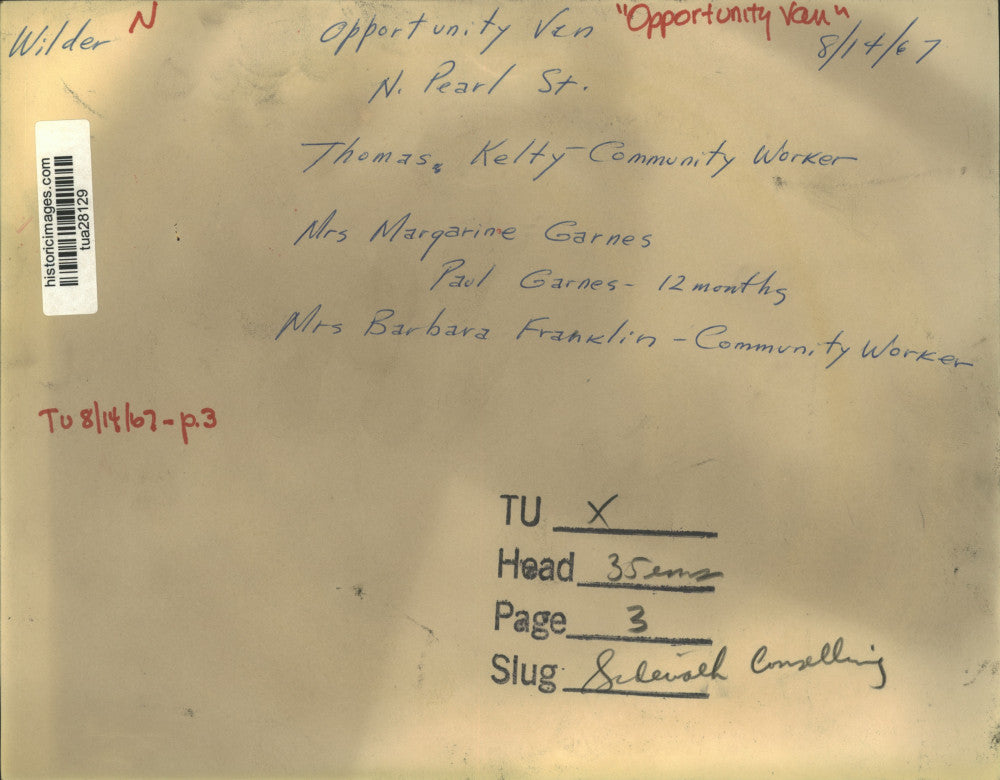 Wilder N Opportunity Van "Opportunity Van"
8/14/67
N. Pearl St.
Thomas Kelty - Community Worker
Mrs Margarine Garnes
Paul Garnes - 12 months
Mrs Barbara Franklin - Community Worker
historicimages.com
tua28129
TU 8/14/67 - p.3
TU X
Head 35 ems
Page 3
Slug Sidewalk Conselling